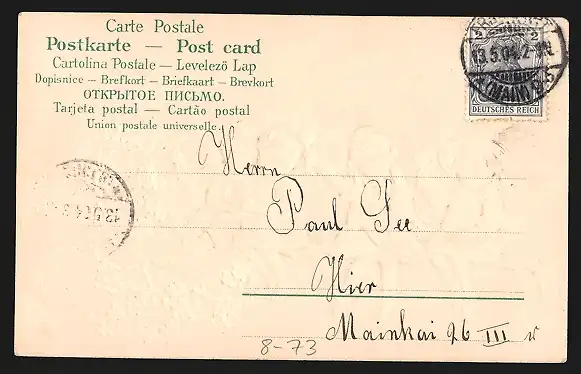 Carte Postale
Postkarte — Post card
Cartolina Postale — Levelező Lap
Dopisnice — Brefkort — Briefkaart — Brevkort
ОТКРЫТОЕ ПИСЬМО.
Tarjeta postal — Cartão postal
Union postale universelle.
2 2
13.5.04. 2-
(MAIN)
DEUTSCHES REICH
Herrn
Paul See
Hier
Mainkai 26 III
8-73